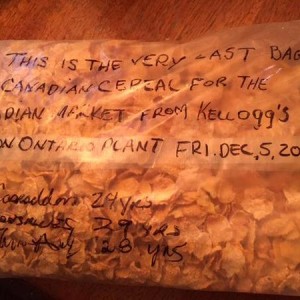 THIS IS THE VERY LAST BAG
CANADIAN CEREAL FOR THE
DIAN MARKET FROM KELLOGG'S
ON ONTARIO PLANT FRI. DEC, 5, 20
29 yrs
29 yrs
28 yrs